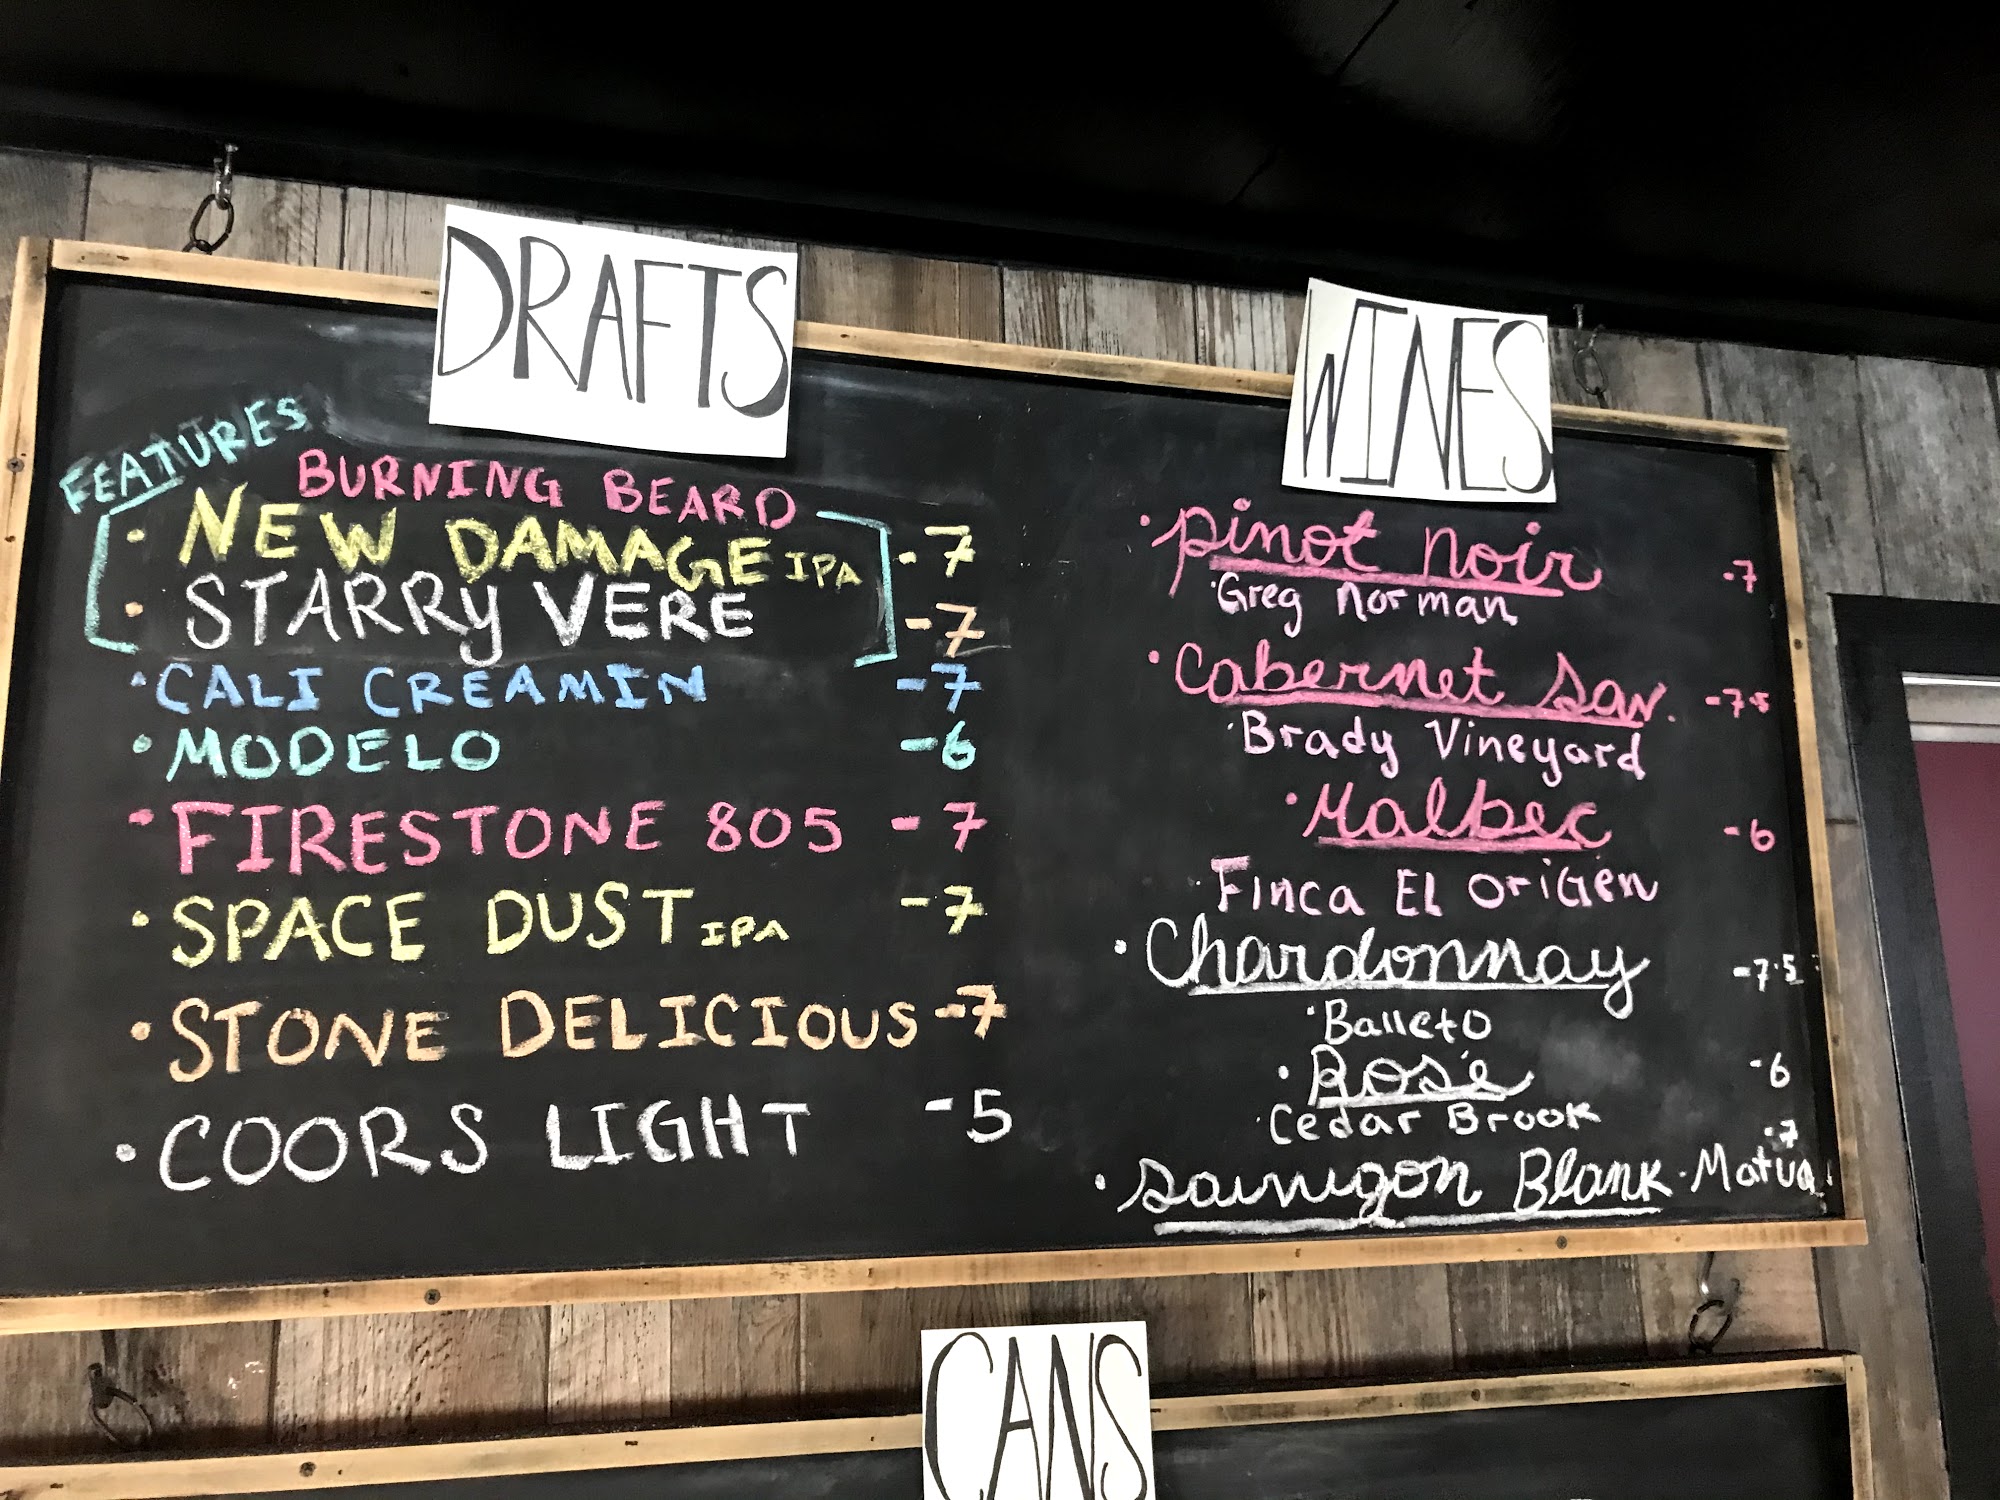 DRAFTS
FEATURES
BURNING BEARD
· NEW DAMAGE IPA -7
· STARRY VERE -7
· CALI CREAMIN -7
· MODELO -6
· FIRESTONE 805 -7
· SPACE DUST IPA -7
· STONE DELICIOUS -7
· COORS LIGHT -5
WINES
· Pinot Noir -7
· Greg Norman
· Cabernet Sav. -7.5
· Brady Vineyard
· Malbec -6
· Finca El Origen
· Chardonnay -7.5
· Balleto
· Rosé -6
· Cedar Brook
· Sauvigon Blank · Matua -7
CANS